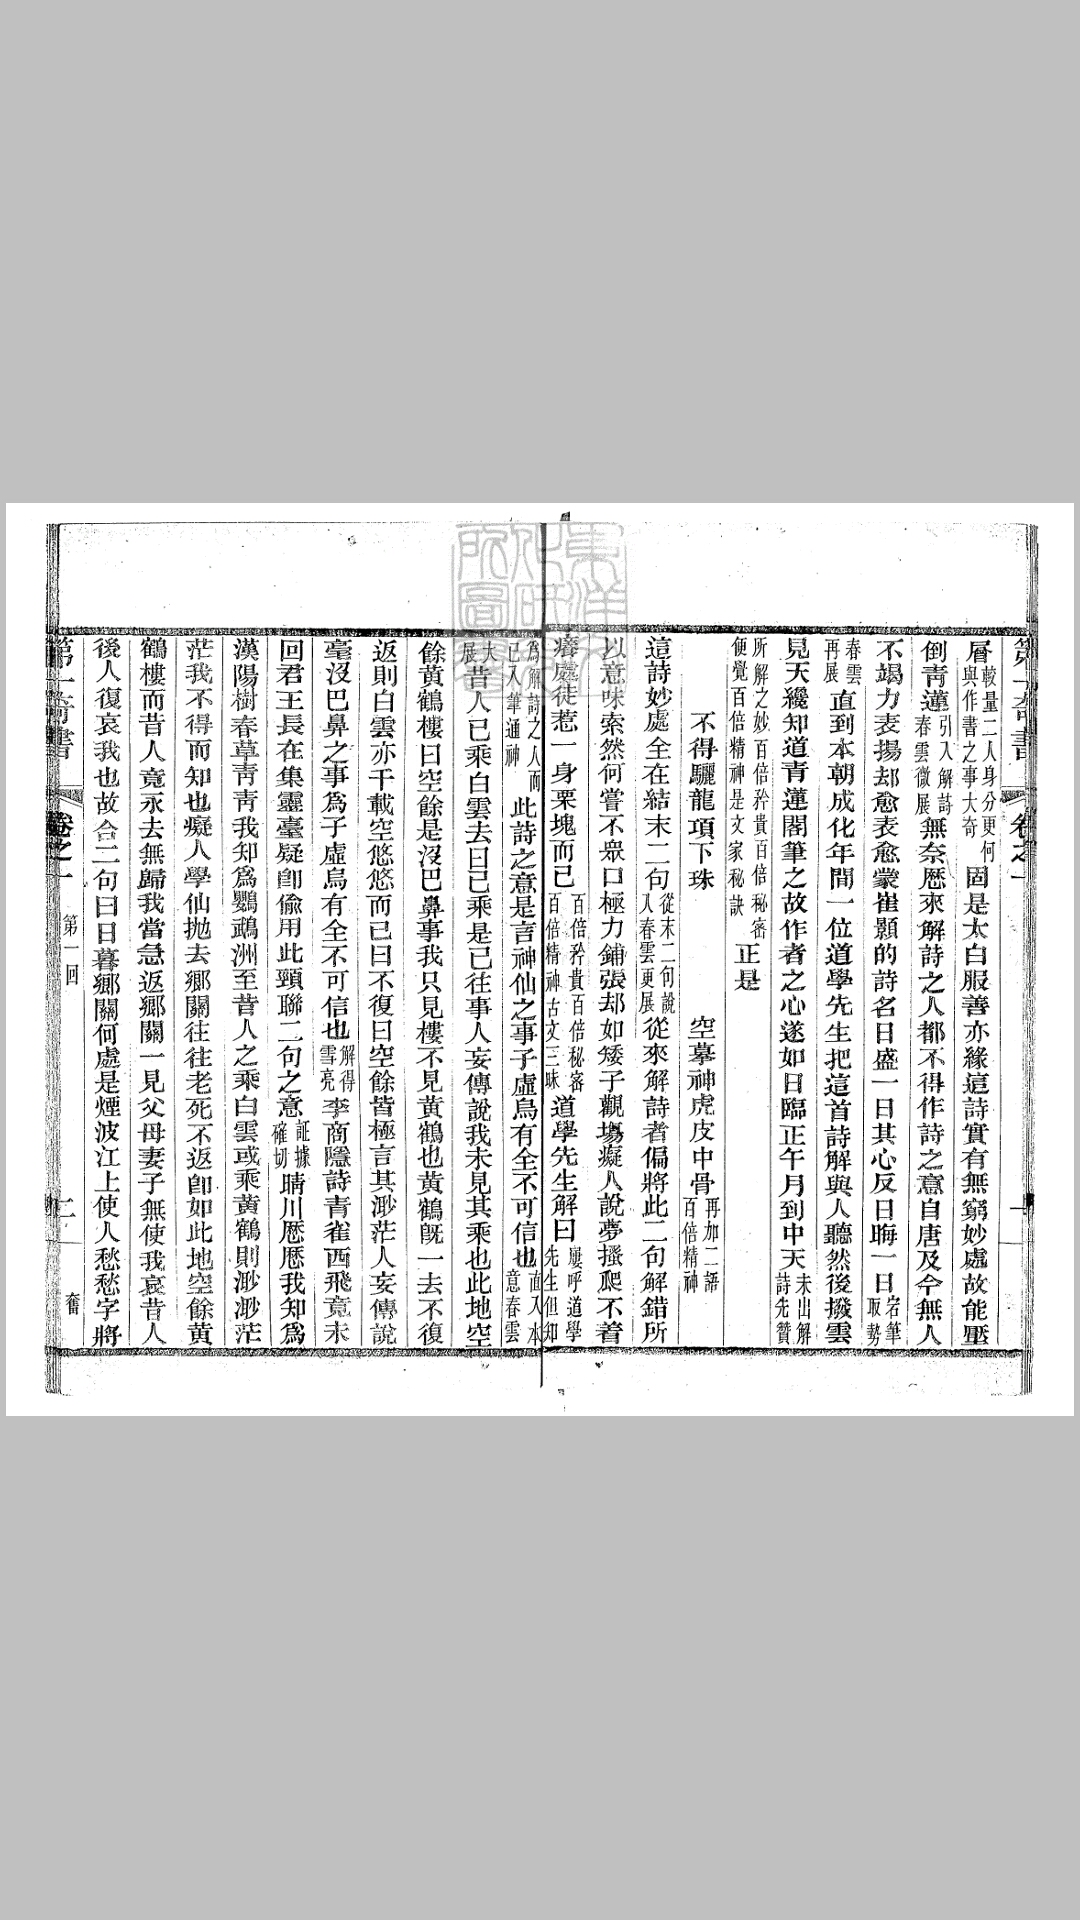 第一奇書 卷之一 一
層較量二人身分更何與作書之事大奇固是太白服善亦緣這詩實有無窮妙處故能壓
倒青蓮引入解詩春雲微展無奈歷來解詩之人都不得作詩之意自唐及今無人
不竭力表揚却愈表愈蒙崔顥的詩名日盛一日其心反日晦一日宕筆取勢
春雲再展直到本朝成化年間一位道學先生把這首詩解與人聽然後撥雲
見天纔知道青蓮閣筆之故作者之心遂如日臨正午月到中天未出解詩先贊
所解之妙百倍矜貴百倍秘密便覺百倍精神是文家秘訣正是
不得驪龍項下珠 空摹神虎皮中骨再加二語百倍精神
這詩妙處全在結末二句從末二句說入春雲更展從來解詩者偏將此二句解錯所
以意味索然何嘗不衆口極力鋪張却如矮子觀塲癡人說夢搔爬不着
癢處徒惹一身栗塊而已百倍矜貴百倍秘密百倍精神古文三昧道學先生解曰屢呼道學先生但知
為解詩之人而已入筆通神此詩之意是言神仙之事子虛烏有全不可信也直入水意春雲
大展昔人已乘白雲去曰已乘是已往事人妄傳說我未見其乘也此地空
餘黃鶴樓曰空餘是沒巴鼻事我只見樓不見黃鶴也黃鶴旣一去不復
返則白雲亦千載空悠悠而已曰不復曰空餘皆極言其渺茫人妄傳說
毫沒巴鼻之事爲子虛烏有全不可信也解得雪亮李商隱詩青雀西飛竟未
回君王長在集靈臺疑卽偷用此頸聯二句之意証據確切晴川歷歷我知爲
漢陽樹春草靑靑我知爲鸚鵡洲至昔人之乘白雲或乘黃鶴則渺渺茫
茫我不得而知也癡人學仙抛去鄉關往往老死不返卽如此地空餘黃
鶴樓而昔人竟永去無歸我當急返鄉關一見父母妻子無使我哀昔人
後人復哀我也故合二句曰日暮鄉關何處是煙波江上使人愁愁字將
第一奇書 卷之一 第一回 二 奮